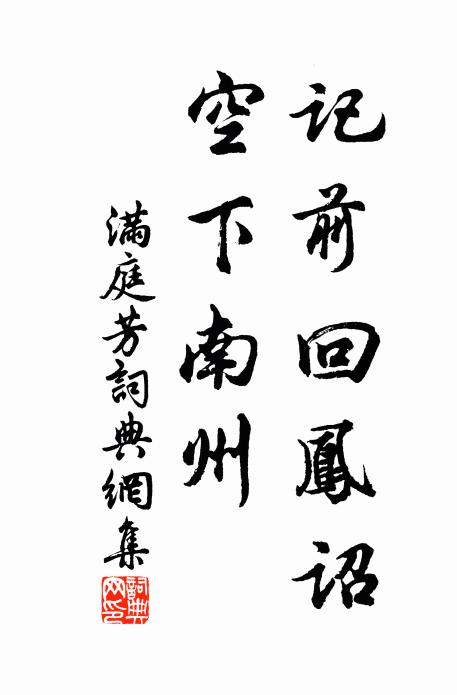 記前回鳳詔
空下南州
滿庭芳詞典網集
詞典网印